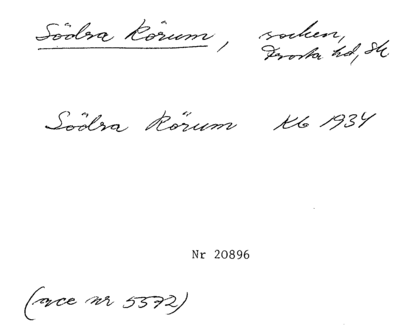 Södra Rörum, socken,
Frosta hd, Sk
Södra Rörum Kb 1934
Nr 20896
(acc nr 5572)